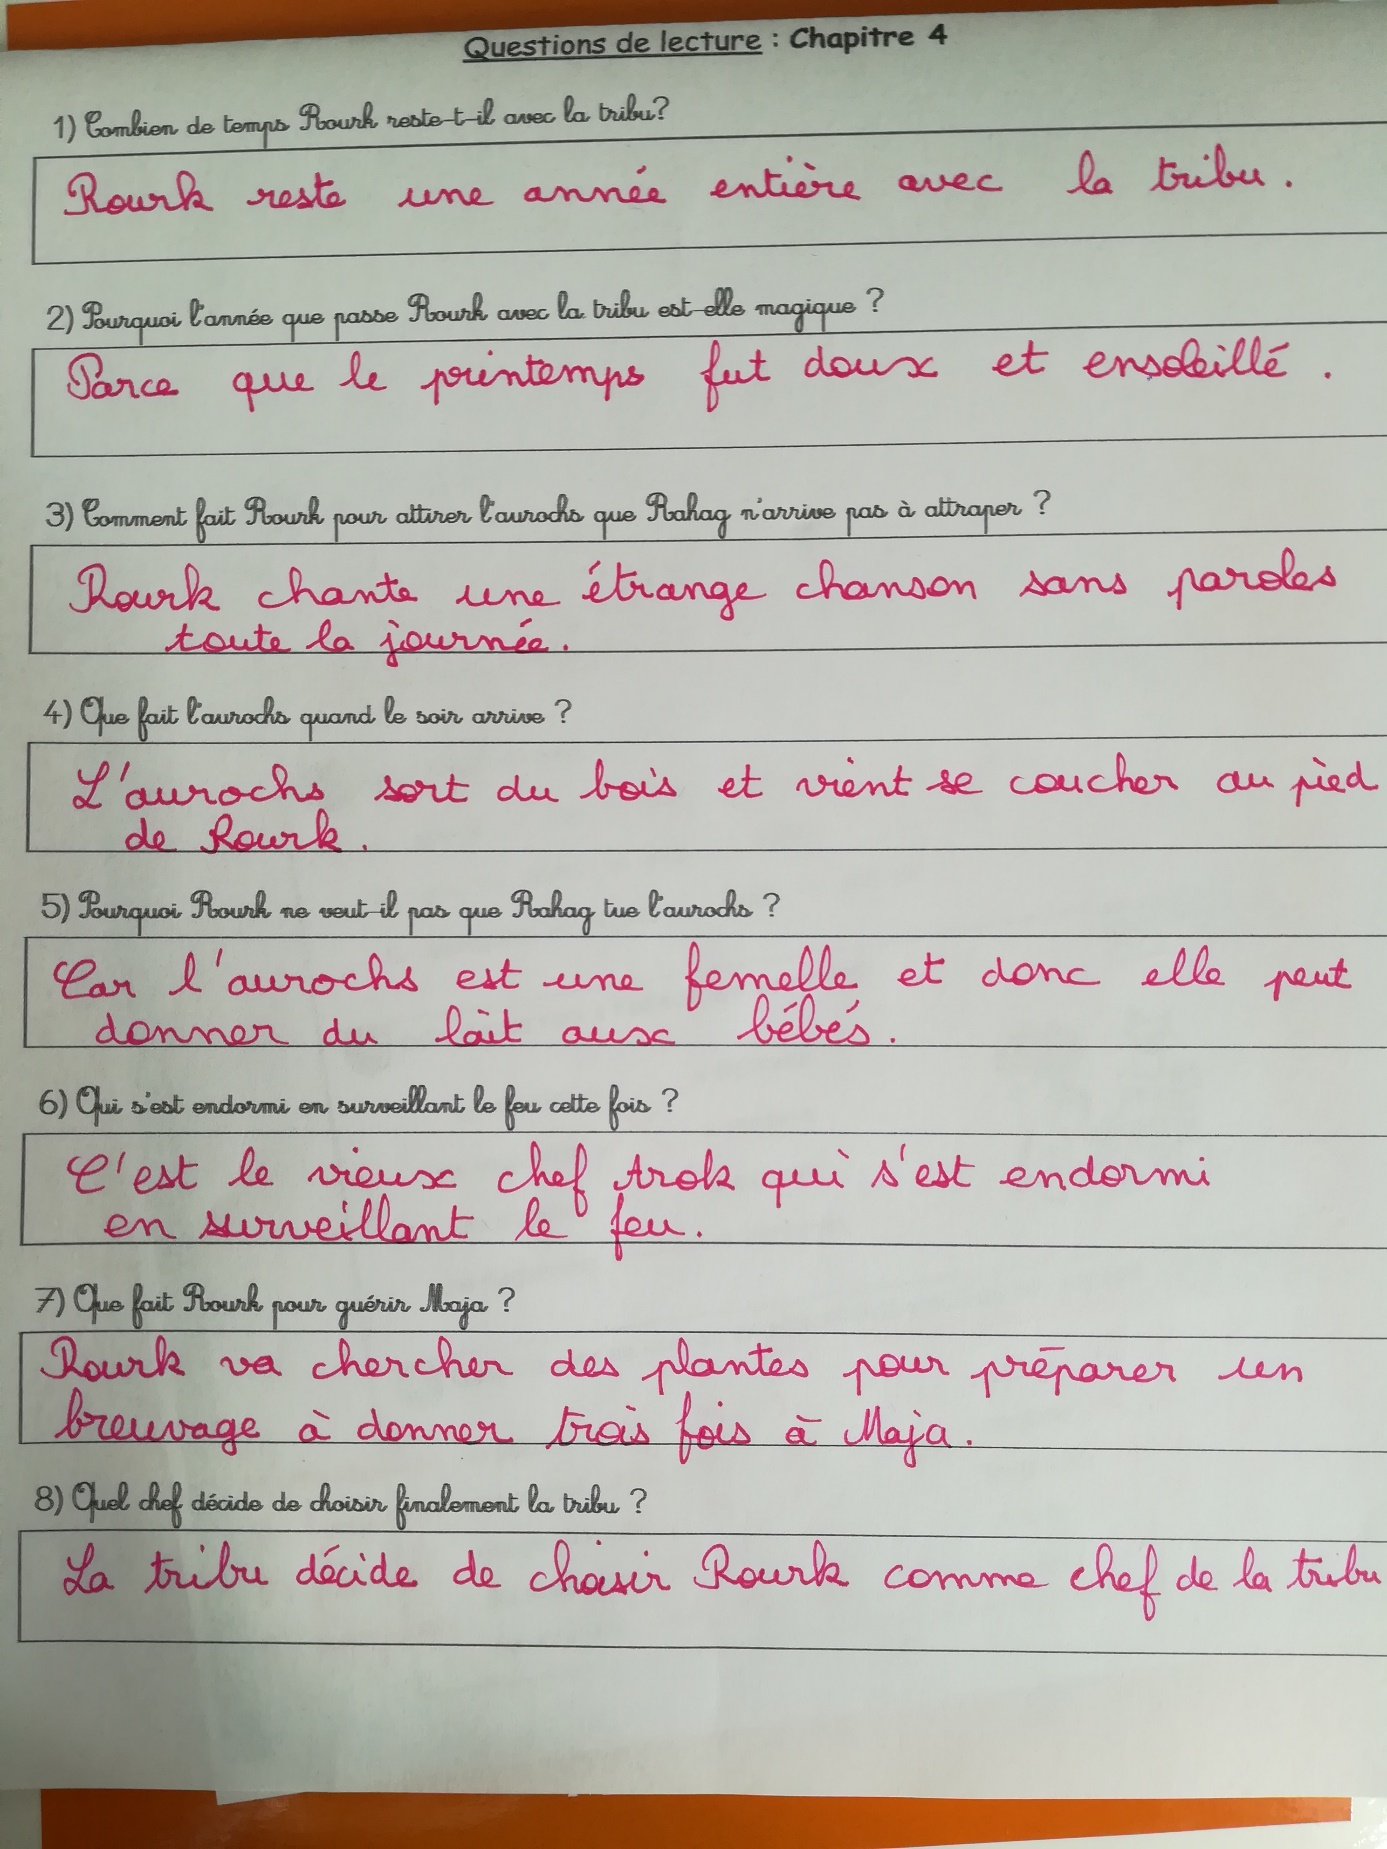 Questions de lecture : Chapitre 4
1) Combien de temps Rourk reste-t-il avec la tribu?
Rourk reste une année entière avec la tribu.
2) Pourquoi l'année que passe Rourk avec la tribu est-elle magique ?
Parce que le printemps fut doux et ensoleillé.
3) Comment fait Rourk pour attirer l'aurochs que Rahag n'arrive pas à attraper ?
Rourk chante une étrange chanson sans paroles
toute la journée.
4) Que fait l'aurochs quand le soir arrive ?
L'aurochs sort du bois et vient se coucher au pied
de Rourk.
5) Pourquoi Rourk ne veut-il pas que Rahag tue l'aurochs ?
Car l'aurochs est une femelle et donc elle peut
donner du lait aux bébés.
6) Qui s'est endormi en surveillant le feu cette fois ?
C'est le vieux chef Arok qui s'est endormi
en surveillant le feu.
7) Que fait Rourk pour guérir Maja ?
Rourk va chercher des plantes pour préparer un
breuvage à donner trois fois à Maja.
8) Quel chef décide de choisir finalement la tribu ?
La tribu décide de choisir Rourk comme chef de la tribu